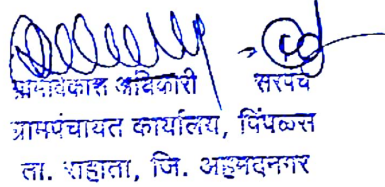 ग्रामविकास अधिकारी सरपंच
ग्रामपंचायत कार्यालय, पिंपळस
ता. राहाता, जि. अहमदनगर